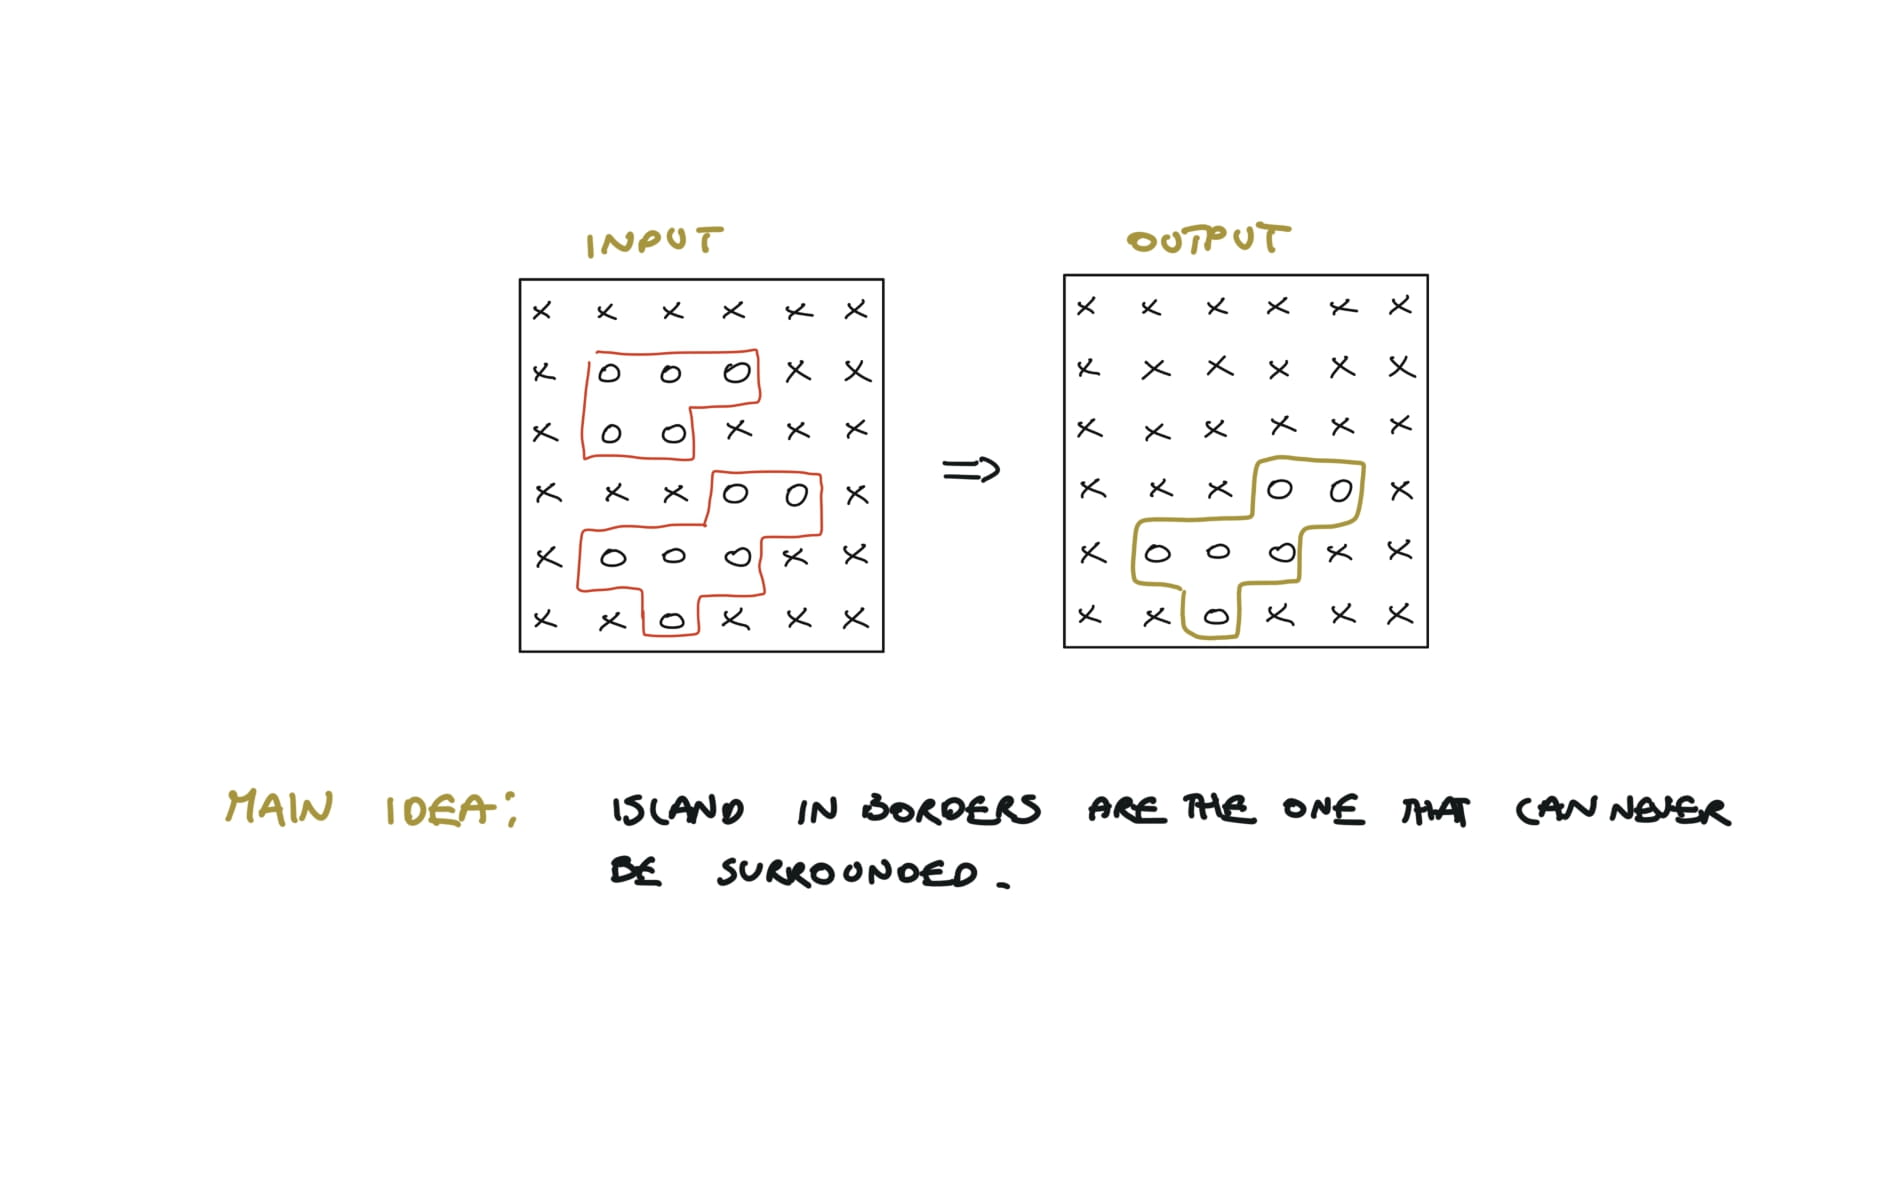 INPUT
OUTPUT
X X X X X X
X O O O X X
X O O X X X
X X X O O X
X O O O X X
X X O X X X
⇒
X X X X X X
X X X X X X
X X X X X X
X X X O O X
X O O O X X
X X O X X X
MAIN IDEA: ISLAND IN BORDERS ARE THE ONE THAT CAN NEVER
BE SURROUNDED.